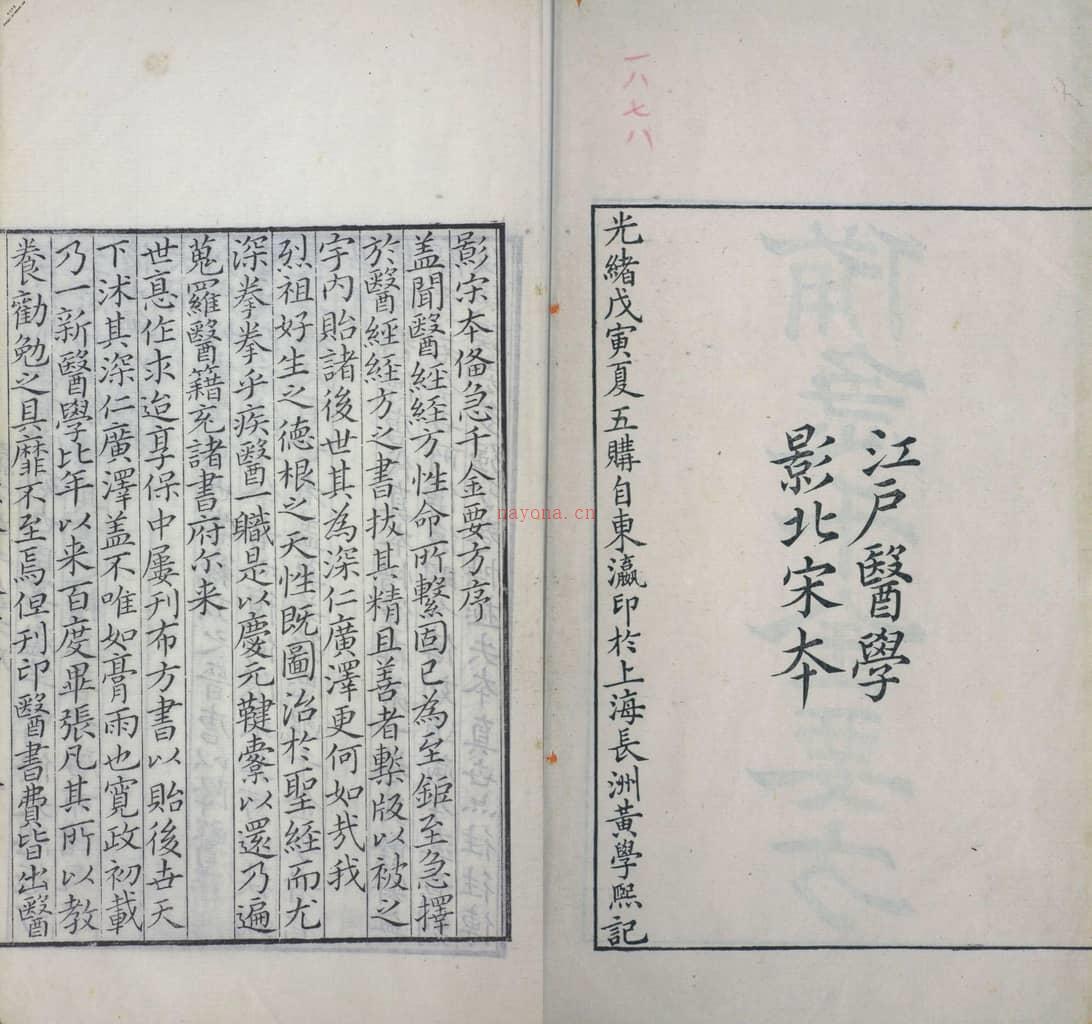 一八七八
江戶醫學
影北宋本
光緒戊寅夏五購自東瀛印於上海長洲黃學熙記
影宋本備急千金要方序
盖聞醫經經方性命所繫固已為至鉅至急擇
於醫經經方之書拔其精且善者槧版以被之
宇內貽諸後世其為深仁廣澤更何如㢤我
烈祖好生之德根之天性既圖治於聖經而尤
深拳拳乎疾醫一職是以慶元鞬櫜以還乃遍
蒐羅醫籍充諸書府尔来
世意作求迨享保中屢刊布方書以貽後世天
下沭其深仁廣澤盖不唯如膏雨也寬政初載
乃一新醫學比年以来百度畢張凡其所以教
養勸勉之具靡不至焉但刊印醫書費皆出醫
nayona.cn